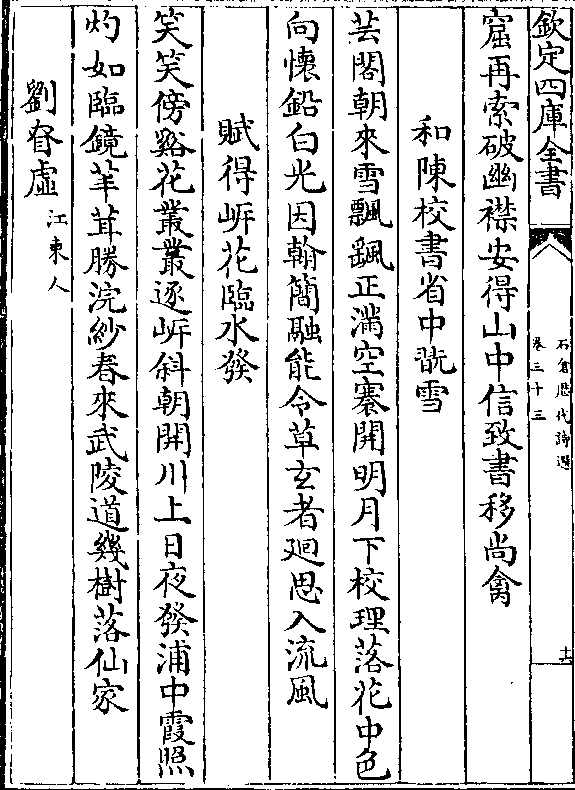 欽定四庫全書
石倉歷代詩選
卷三十三
十一
窟再索破幽襟安得山中信致書移尚禽
和陳校書省中翫雪
芸閣朝來雪飄飖正滿空褰開明月下校理落花中色
向懷鉛白光因翰簡融能令草玄者廻思入流風
賦得岸花臨水發
笑笑傍谿花叢叢逐岸斜朝開川上日夜發浦中霞照
灼如臨鏡丰茸勝浣紗春來武陵道幾樹落仙家
劉眘虛江東人